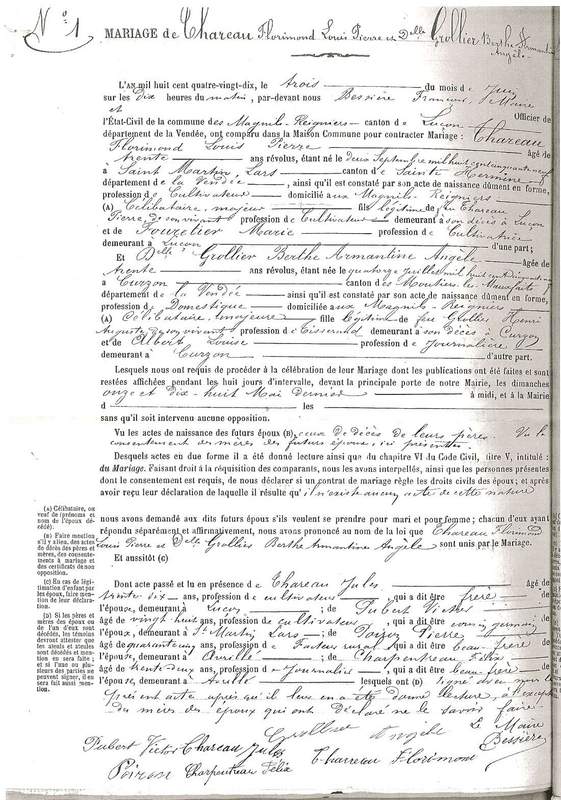 N° 1
MARIAGE de Chareau Florimond Louis Pierre et Delle Grollier Berthe Armantine
Angèle
L'AN mil huit cent quatre-vingt-dix, le trois du mois de Juin
sur les Dix heures du matin, par-devant nous Bessière François, Maire
et Officier de
l'État-Civil de la commune des Magnils-Reigniers canton de Luçon
département de la Vendée, ont comparu dans la Maison Commune pour contracter Mariage : Chareau
Florimond Louis Pierre âgé de
trente ans révolus, étant né le deux Septembre mil huit cent cinquante neuf
à Saint Martin Lars canton de Sainte Hermine
département de la Vendée, ainsi qu'il est constaté par son acte de naissance dûment en forme,
profession de Cultivateur domicilié aux Magnils Reigniers
(A) Célibataire, majeur fils légitime de feu Chareau
Pierre, de son vivant profession de Cultivateur demeurant à son décès à Luçon
et de Fouzelier Marie profession de Cultivatrice
demeurant à Luçon d'une part;
Et Delle Grollier Berthe Armantine Angèle Agée de
trente ans révolus, étant née le quatorze Juillet mil huit cent
à Curzon canton des Moutiers les Mauxfaits
département de la Vendée ainsi qu'il est constaté par son acte de naissance dûment en forme,
profession de Domestique domiciliée aux Magnils Reigniers
(A) Célibataire, majeure fille légitime de feu Grollier Henri
Auguste de son vivant profession de Tisserand demeurant à son décès à Curzon
et de Albert Louise profession de Journalière
demeurant à Curzon d'autre part.
Lesquels nous ont requis de procéder à la célébration de leur Mariage dont les publications ont été faites et sont
restées affichées pendant les huit jours d'intervalle, devant la principale porte de notre Mairie, les dimanches
onze et dix-huit Mai dernier à midi, et à la Mairie
d les
sans qu'il soit intervenu aucune opposition.
Vu les actes de naissance des futurs époux (B) ceux de décès de leurs pères. Vu le
consentement des mères des futurs époux, ici présentes.
Desquels actes en due forme il a été donné lecture ainsi que du chapitre VI du Code Civil, titre V, intitulé :
du Mariage. Faisant droit à la réquisition des comparants, nous les avons interpellés, ainsi que les personnes présentes
dont le consentement est requis, de nous déclarer si un contrat de mariage règle les droits civils des époux; et après
avoir reçu leur déclaration de laquelle il résulte qu'il n'existe aucun acte de cette nature
nous avons demandé aux dits futurs époux s'ils veulent se prendre pour mari et pour femme; chacun d'eux ayant
répondu séparément et affirmativement, nous avons prononcé au nom de la loi que Chareau Florimond
Louis Pierre et Delle Grollier Berthe Armantine Angèle sont unis par le Mariage.
Et aussitôt (C)
(A) Célibataire, ou
veuf de (prénoms et
nom de l'époux décédé).
(B) Faire mention
s'il y a lieu, des actes
de décès des pères et
mères, des consentements
à mariage et
des certificats de non
opposition.
(C) En cas de légitimation
d'enfant par
les époux, faire mention
de leur déclaration.
(D) Si les pères et
mères des époux ou
de l'un d'eux sont
décédés, les témoins
devront attester que
les aïeuls et aïeules
sont décédés et mention
en sera faite;
et si l'une ou plusieurs
des parties ne
peuvent signer, il en
sera fait aussi mention.
Dont acte passé et lu en présence de Chareau Jules âgé de
trente dix ans, profession de cultivateur, qui a dit être frère de
l'époux, demeurant à Luçon; de Pubert Victor
âgé de vingt huit ans, profession de cultivateur, qui a dit être cousin germain de
l'époux, demeurant à St Martin Lars; de Poiron Pierre
âgé de quarante cinq ans, profession de Facteur rural, qui a dit être beau-frère de
l'épouse, demeurant à Avrillé; de Charpentreau Félix
âgé de trente deux ans, profession de Journalier, qui a dit être beau-frère de
l'épouse, demeurant à Avrillé lesquels ont (D) signé avec nous le
présent acte après qu'il leur en a été donné lecture, à l'exception
du mères des époux qui ont déclaré ne le savoir faire.
Grollier Angèle Le Maire
Pubert Victor Chareau Jules Bessière
Poiron Charpentreau Félix Charreau Florimont